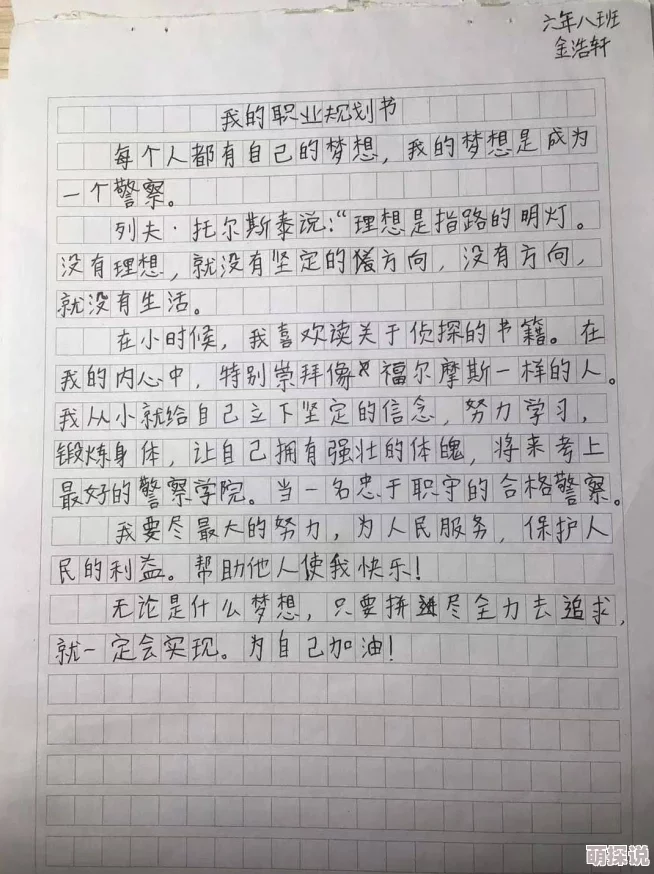 六年八班
金浩轩
我的职业规划书
每个人都有自己的梦想，我的梦想是成为
一个警察。
列夫·托尔斯泰说：“理想是指路的明灯。
没有理想，就没有坚定的方向，没有方向，
就没有生活。
在小时候，我喜欢读关于侦探的书籍。在
我的内心中，特别崇拜像福尔摩斯一样的人。
我从小就给自己立下坚定的信念，努力学习，
锻炼身体，让自己拥有强壮的体魄，将来考上
最好的警察学院。当一名忠于职守的合格警察。
我要尽最大的努力，为人民服务，保护人
民的利益。帮助他人使我快乐！
无论是什么梦想，只要拼尽全力去追求，
就一定会实现。为自己加油！
萌探说